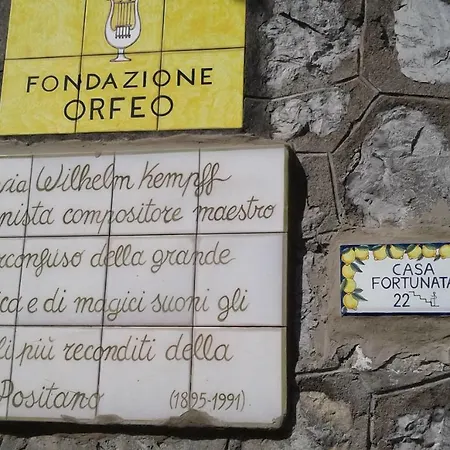 FONDAZIONE
ORFEO
via Wilhelm Kempff
nista compositore maestro
confuso della grande
ca e di magici suoni gli
li più reconditi della
Positano (1895-1991)
CASA
FORTUNATA
22